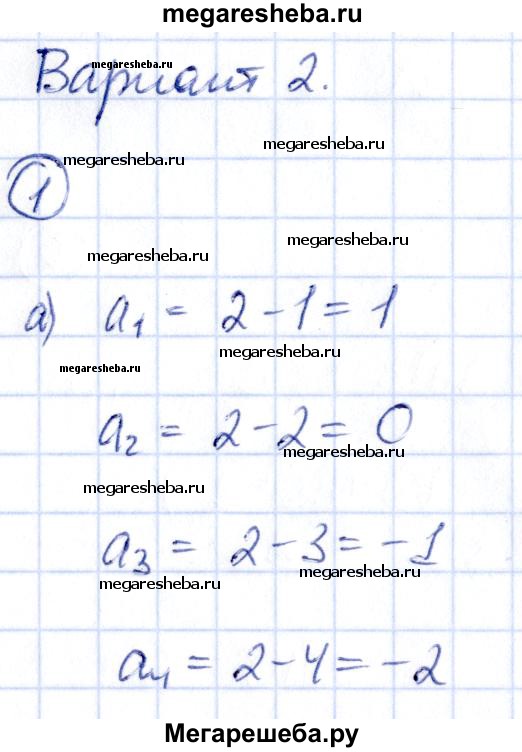 megaresheba.ru
megaresheba.ru
Вариант 2.
megaresheba.ru
megaresheba.ru
1
megaresheba.ru
megaresheba.ru
а) a₁ = 2 - 1 = 1
megaresheba.ru
megaresheba.ru
a₂ = 2 - 2 = 0
megaresheba.ru
megaresheba.ru
a₃ = 2 - 3 = -1
megaresheba.ru
megaresheba.ru
a₄ = 2 - 4 = -2
Мегарешеба.ру